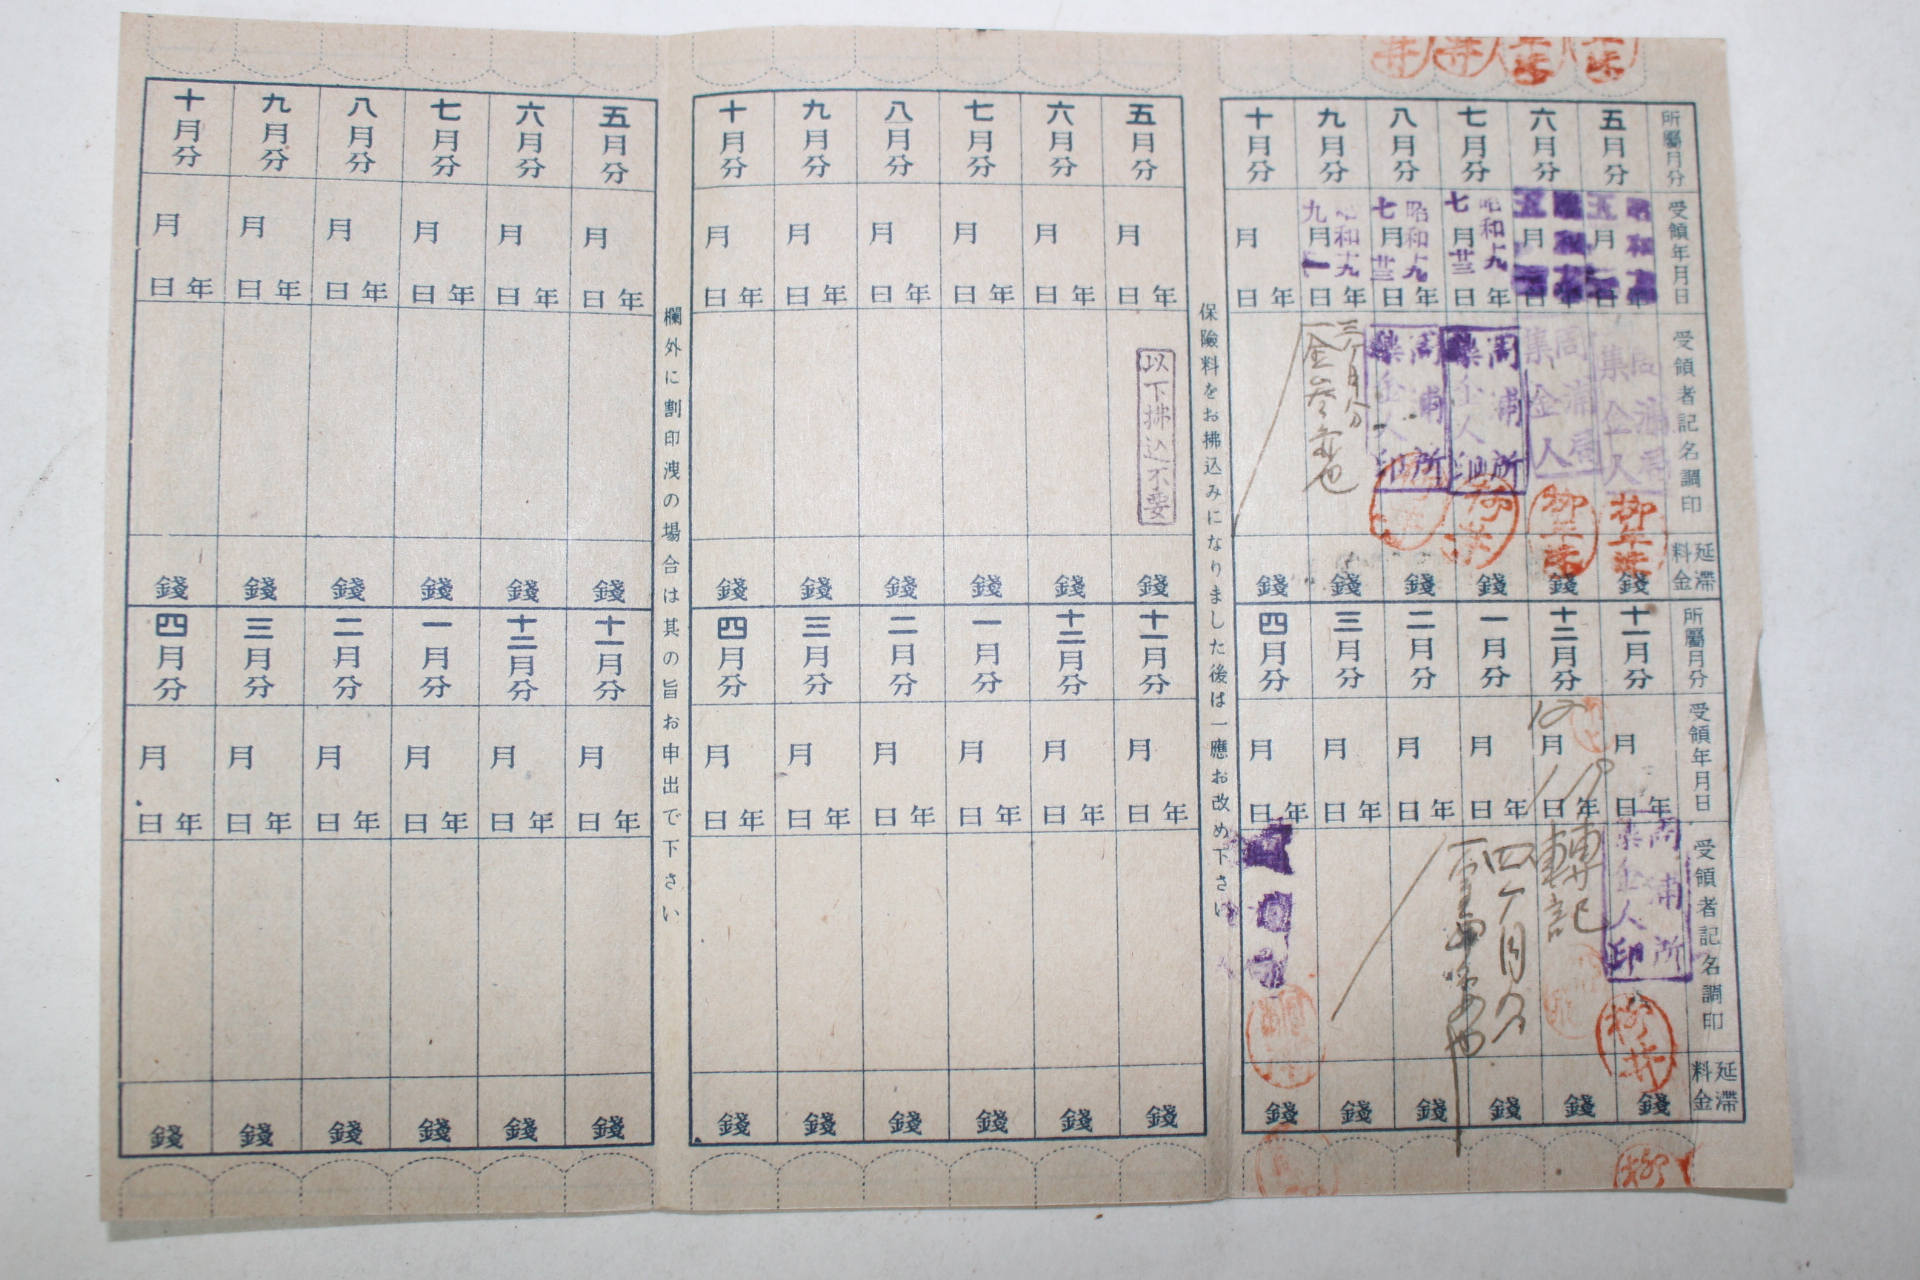 所屬月分
五月分
六月分
七月分
八月分
九月分
十月分
受領年月日
昭和
五
年月日
年月日
昭和十九
七月廿三
年日
昭和十九
七月廿三
年日
昭和十九
九月一
年日
年月日
受領者記名調印
周浦局
集金人
周浦局
集金人
周浦所
集金人印
周浦所
集金人印
三ケ月分
延滯料金
錢
錢
錢
錢
錢
錢
所屬月分
十一月分
十二月分
一月分
二月分
三月分
四月分
受領年月日
年月日
年月日
年月日
年月日
年月日
年月日
受領者記名調印
周浦所
集金人印
柳井
轉記
四ケ月分
延滯料金
錢
錢
錢
錢
錢
錢
保險料をお拂込みになりました後は一應お改め下さい
五月分
六月分
七月分
八月分
九月分
十月分
年月日
年月日
年月日
年月日
年月日
年月日
以下拂込不要
錢
錢
錢
錢
錢
錢
十一月分
十二月分
一月分
二月分
三月分
四月分
年月日
年月日
年月日
年月日
年月日
年月日
錢
錢
錢
錢
錢
錢
欄外に割印洩の場合は其の旨お申出で下さい
五月分
六月分
七月分
八月分
九月分
十月分
年月日
年月日
年月日
年月日
年月日
年月日
錢
錢
錢
錢
錢
錢
十一月分
十二月分
一月分
二月分
三月分
四月分
年月日
年月日
年月日
年月日
年月日
年月日
錢
錢
錢
錢
錢
錢